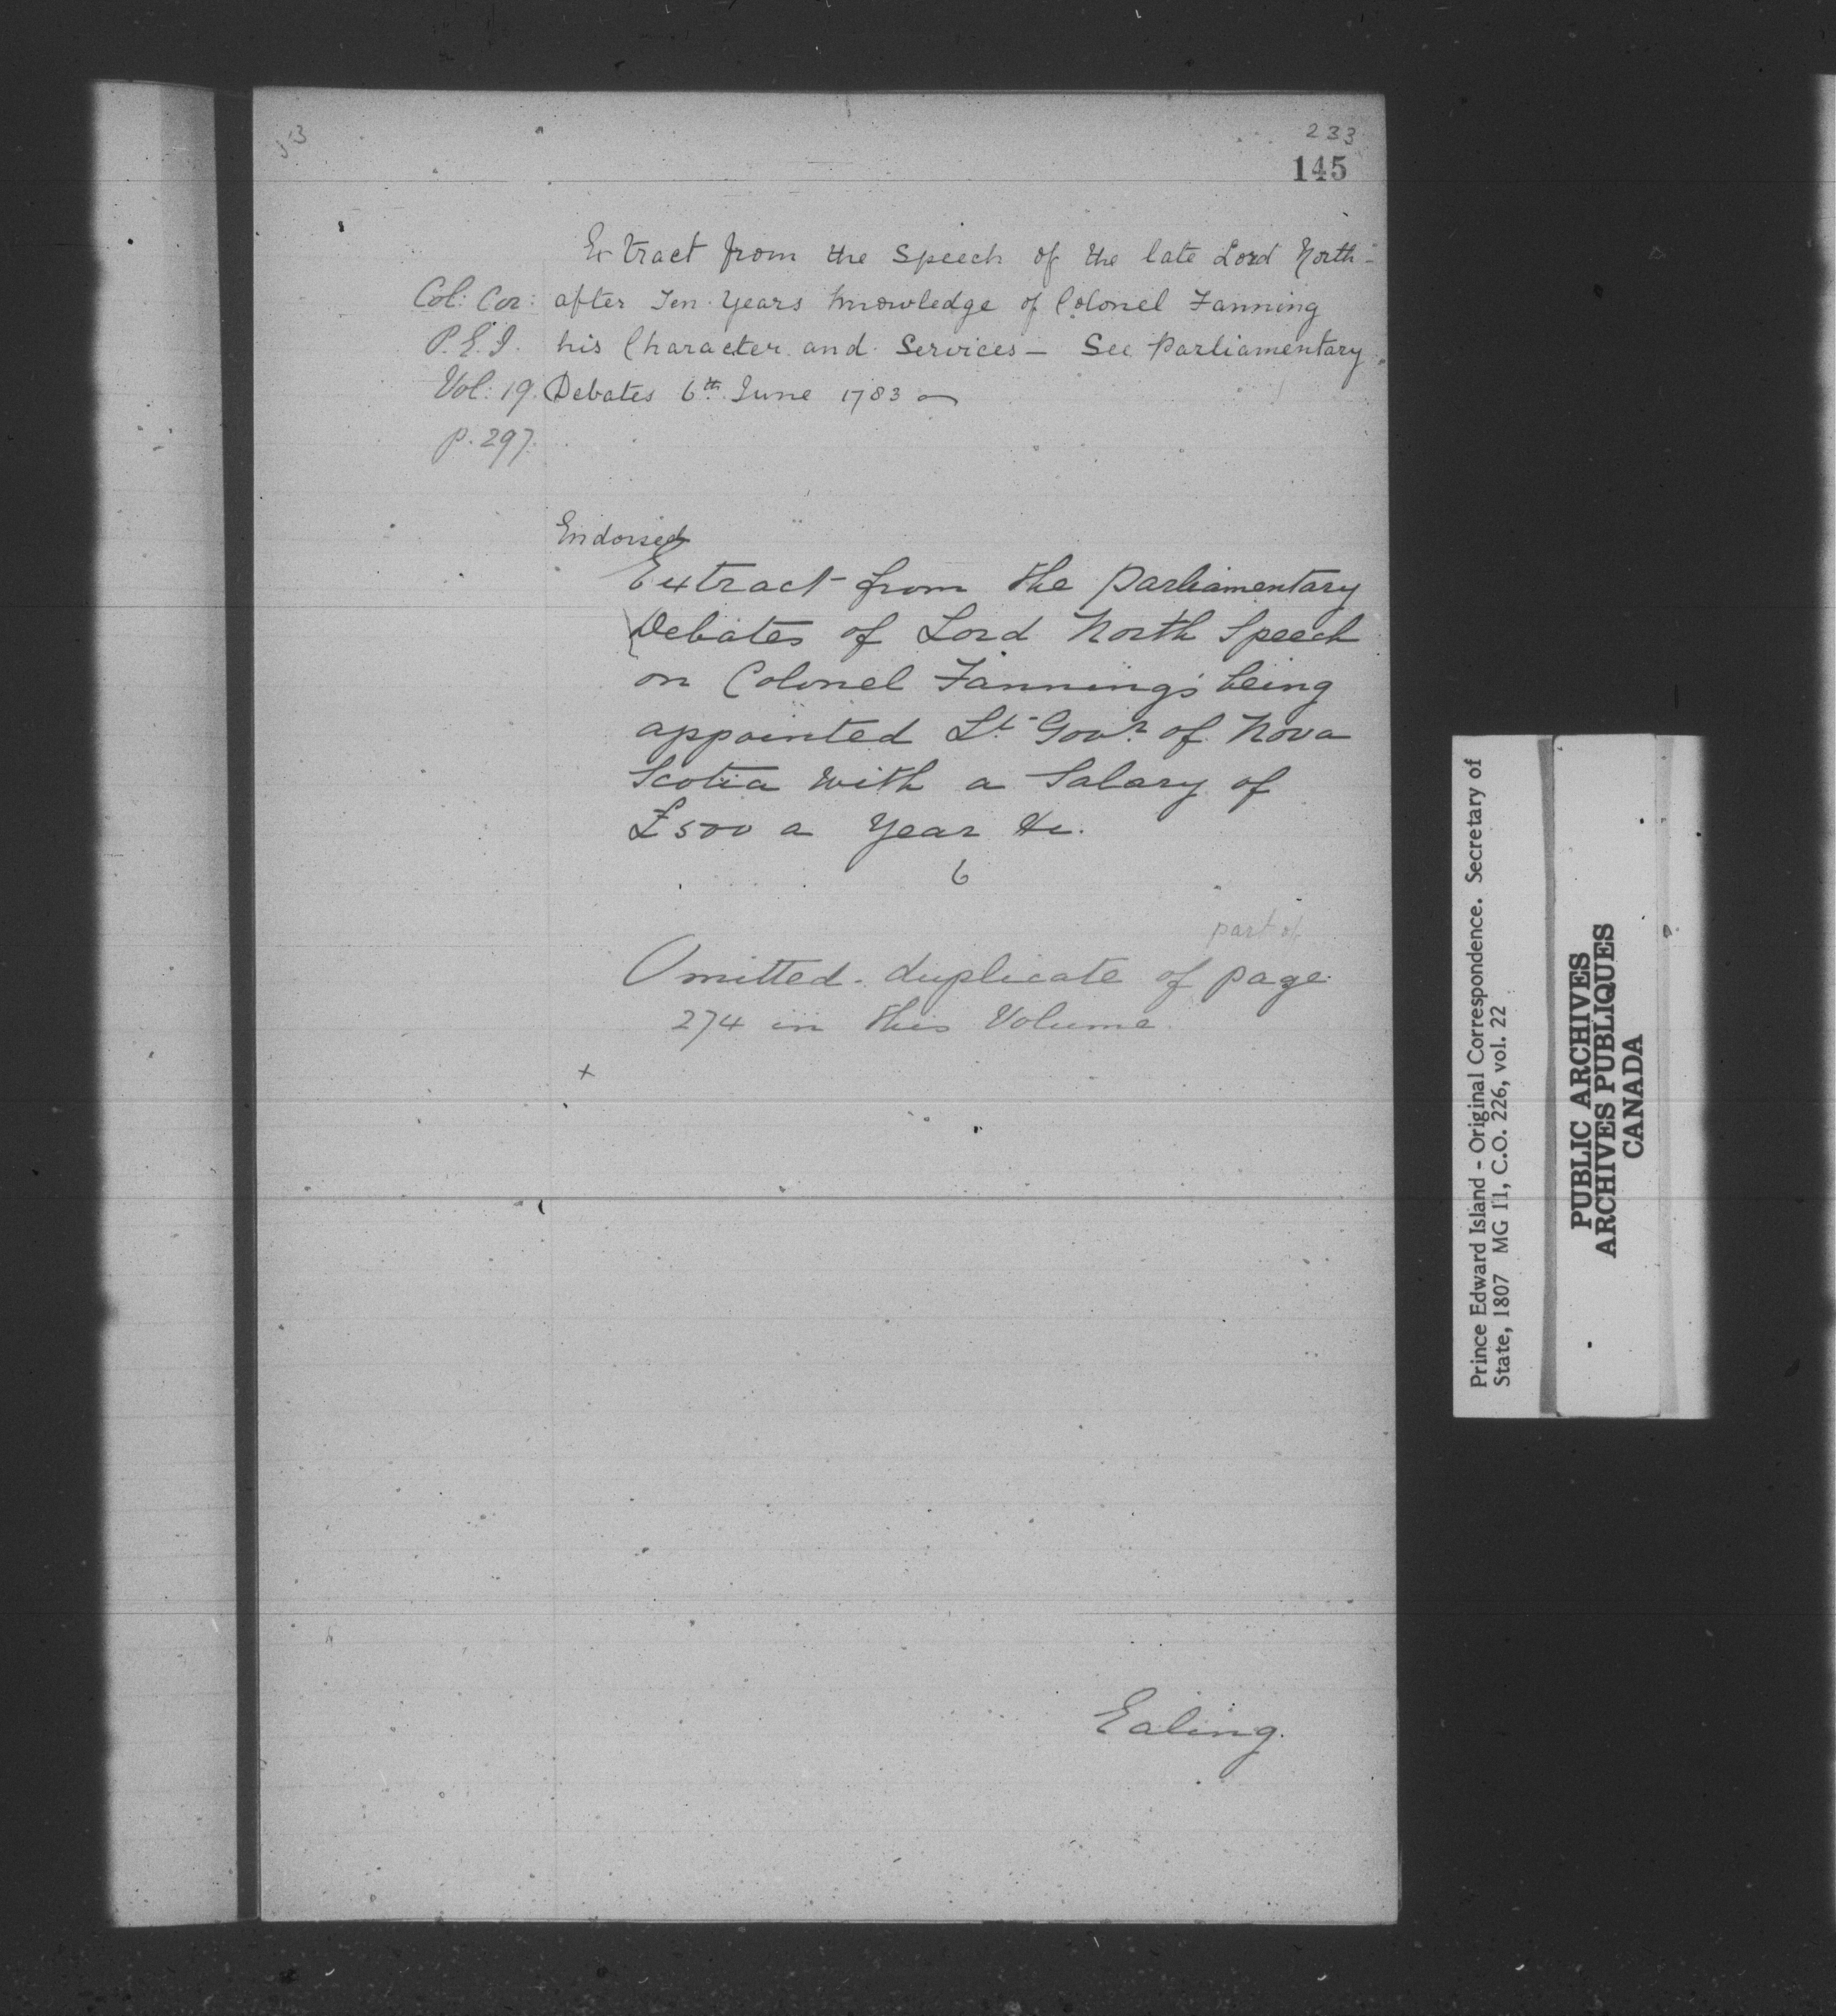 53
233
145
Extract from the Speech of the late Lord North -
Col: Cor: after Ten Years knowledge of Colonel Fanning
P.E.I. his Character and Services — See Parliamentary
Vol: 19. Debates 6th June 1783
p. 297.
Endorsed
Extract from the Parliamentary
Debates of Lord North Speech
on Colonel Fanning's being
appointed Lt Govr of Nova
Scotia with a Salary of
£500 a Year &c.
6
part of
Omitted. duplicate of page
274 in this Volume.
+
Ealing.
Prince Edward Island - Original Correspondence. Secretary of
State, 1807 MG 11, C.O. 226, vol. 22
PUBLIC ARCHIVES
ARCHIVES PUBLIQUES
CANADA